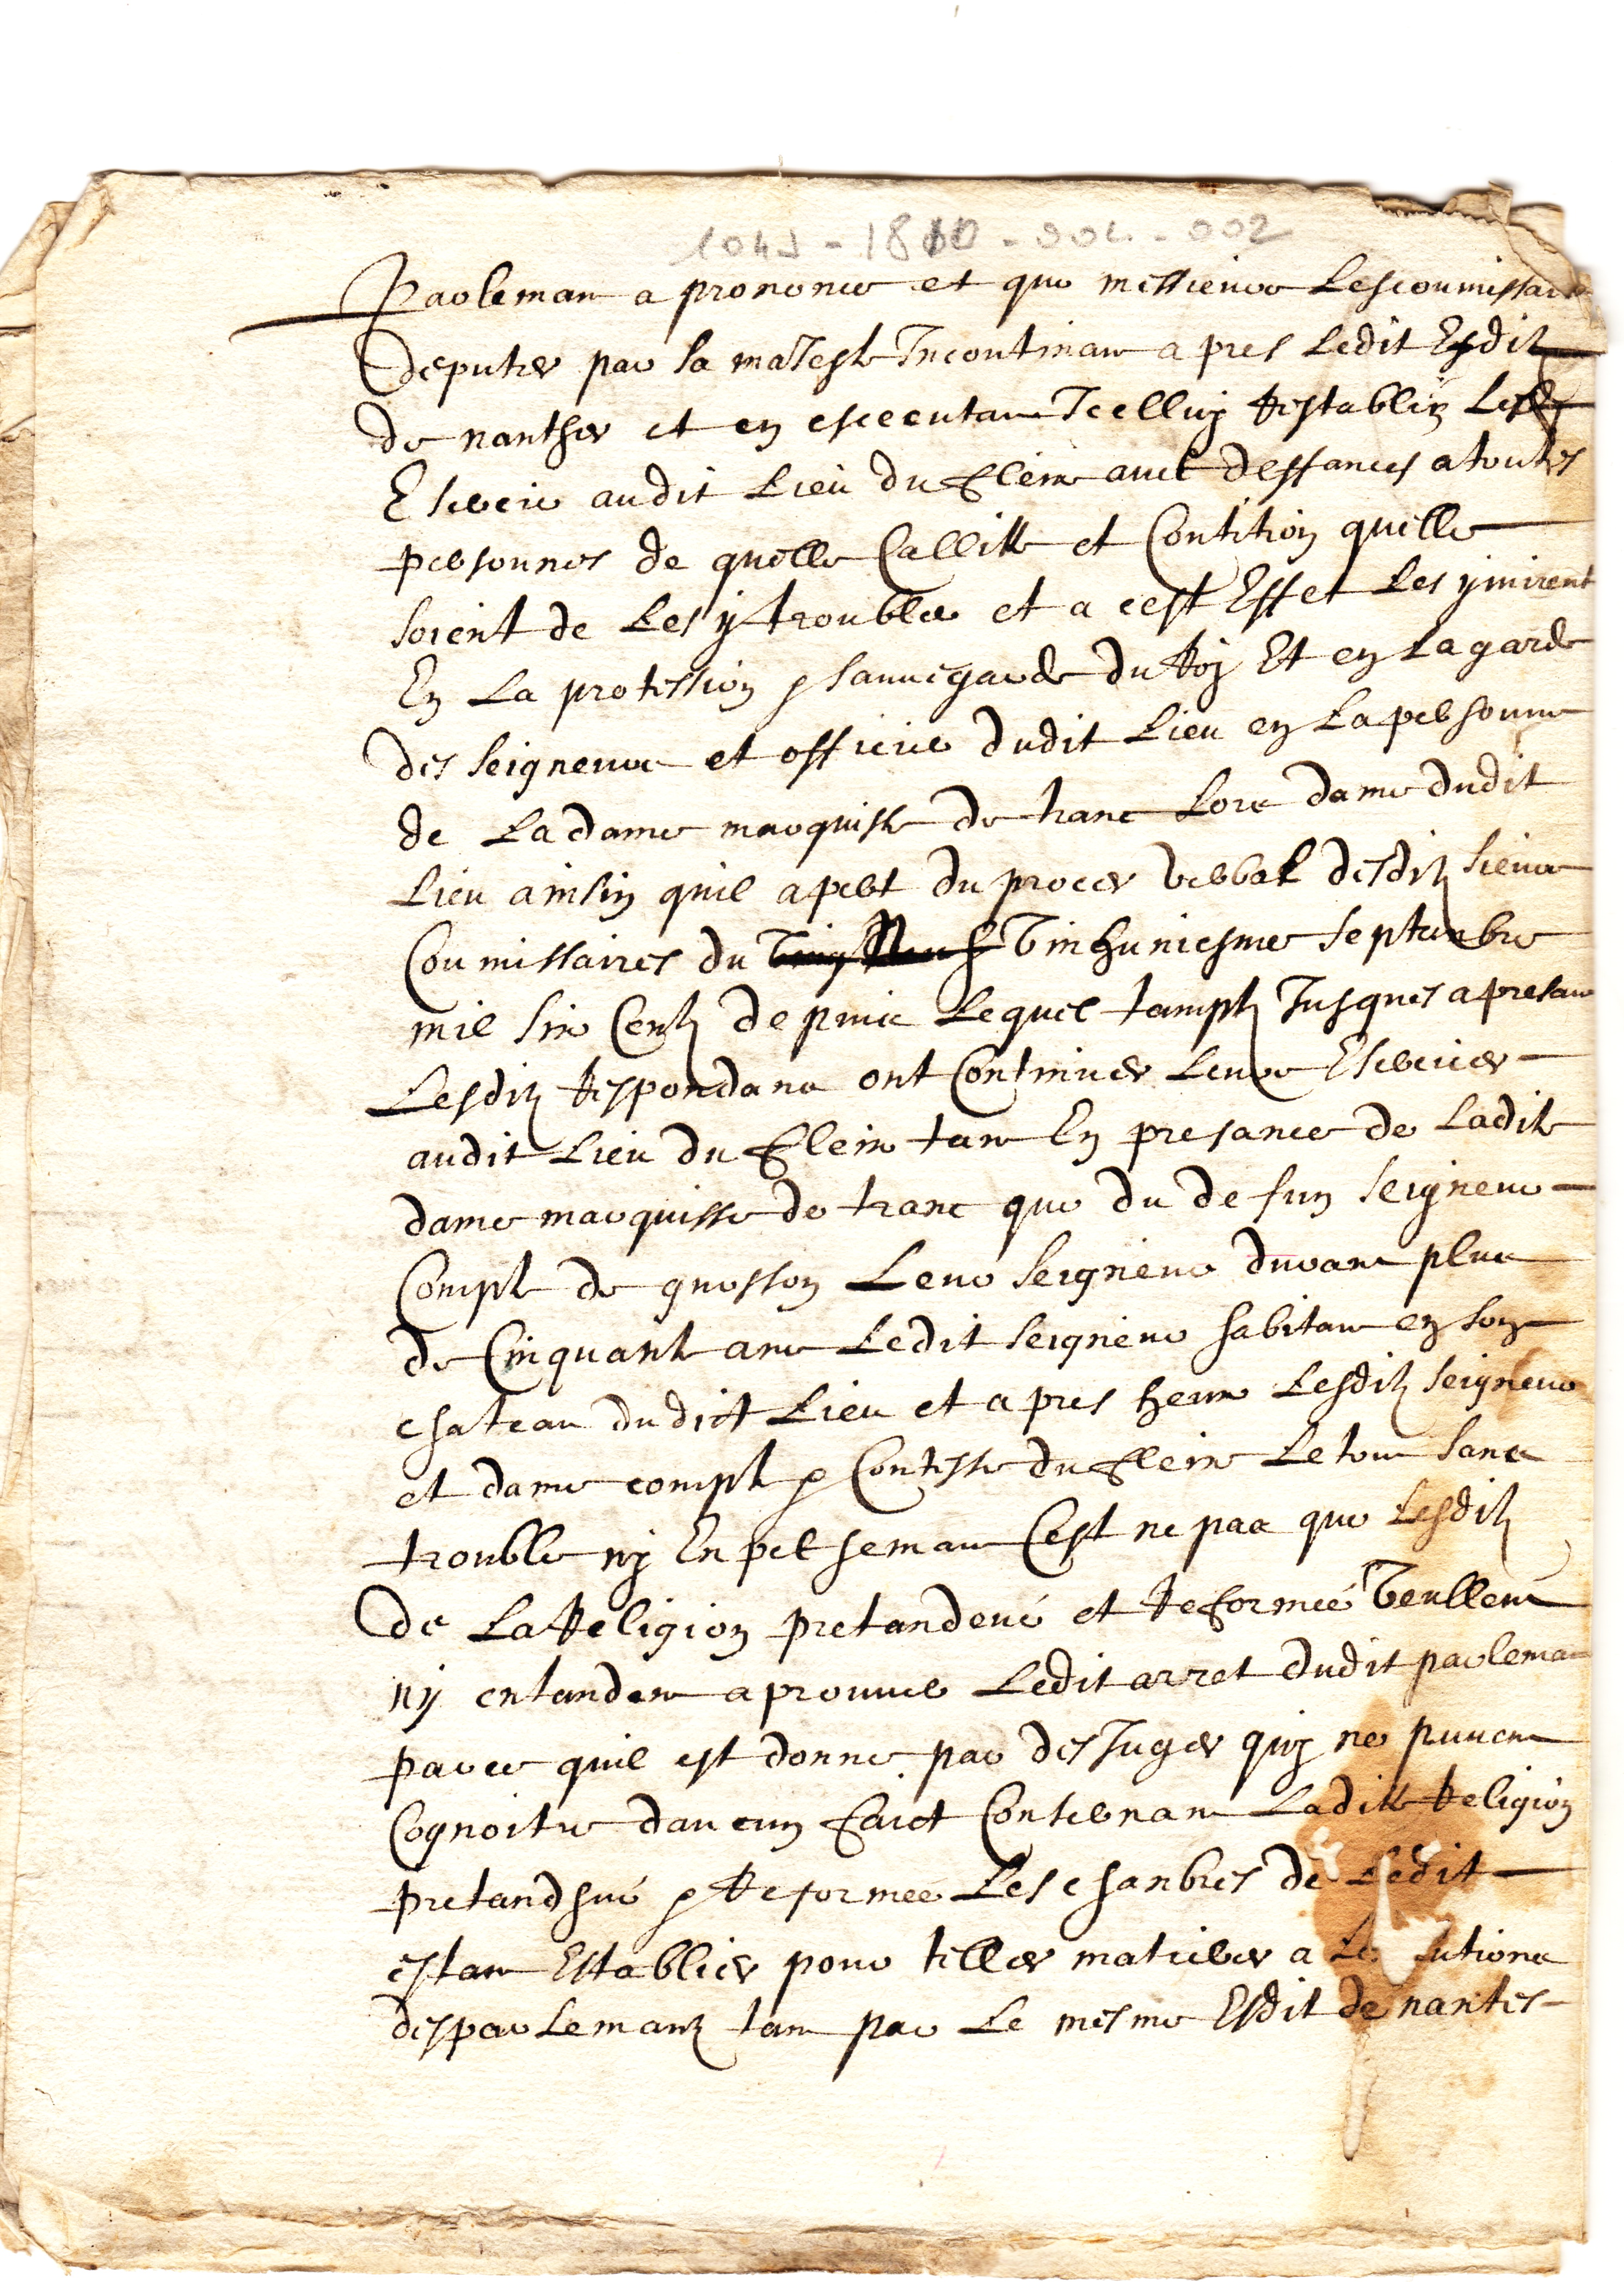 1049 - 1810 - 004 - 002
Parleman a prononce et que messieurs Lescoumissair
deputes par sa maJeste Incontinan apres Ledit Esdit
de nanthes et en esceeutan Icelluy Restablir Les
Eserciе audit Lieu du fleix avec deffances a toutes
personnes de quelle Callitte et Contition quelle
soient de Les y troubler et a cest Effet Les y mirent
En La protession et sauvegarde du Roy Et en La garde
des seigneurs et officiers dudit Lieu en La personne
de La dame marquisse de tranc Lors dame dudit
Lieu ainsin quil apert du proces verbal desditz sieurs
Coumissaires du vinhuniesme septanbre
mil six Centz depuis Lequel tamptz Jusques a presan
Lesditz Respondans ont Continues Leurs Esercices
audit Lieu du fleix tan En presance de Ladite
dame marquisse de tranc que du defun seigneur
Compte de gursson Leur seigneur duran plus
de Cinquante ans Ledit seigneur habitan en son
chateau dudict Lieu et apres heux Lesditz seigneur
et dame compte et Contesse du fleix Le tout sans
trouble ny Enpeseman Cest ne pas que Lesditz
de La Religion pretandeue et Reformée veullent
ny entanden aprouver Ledit arret dudit parleman
parce quil est donne par des Juges quy ne puvent
Cognoitre daucun faict Consernan Ladite Religion
pretandhue et Reformee Les chanbres de Ledit
estan Establies pour telles matieres a
desparlemantz tan par Le mesme Esdit de nantes